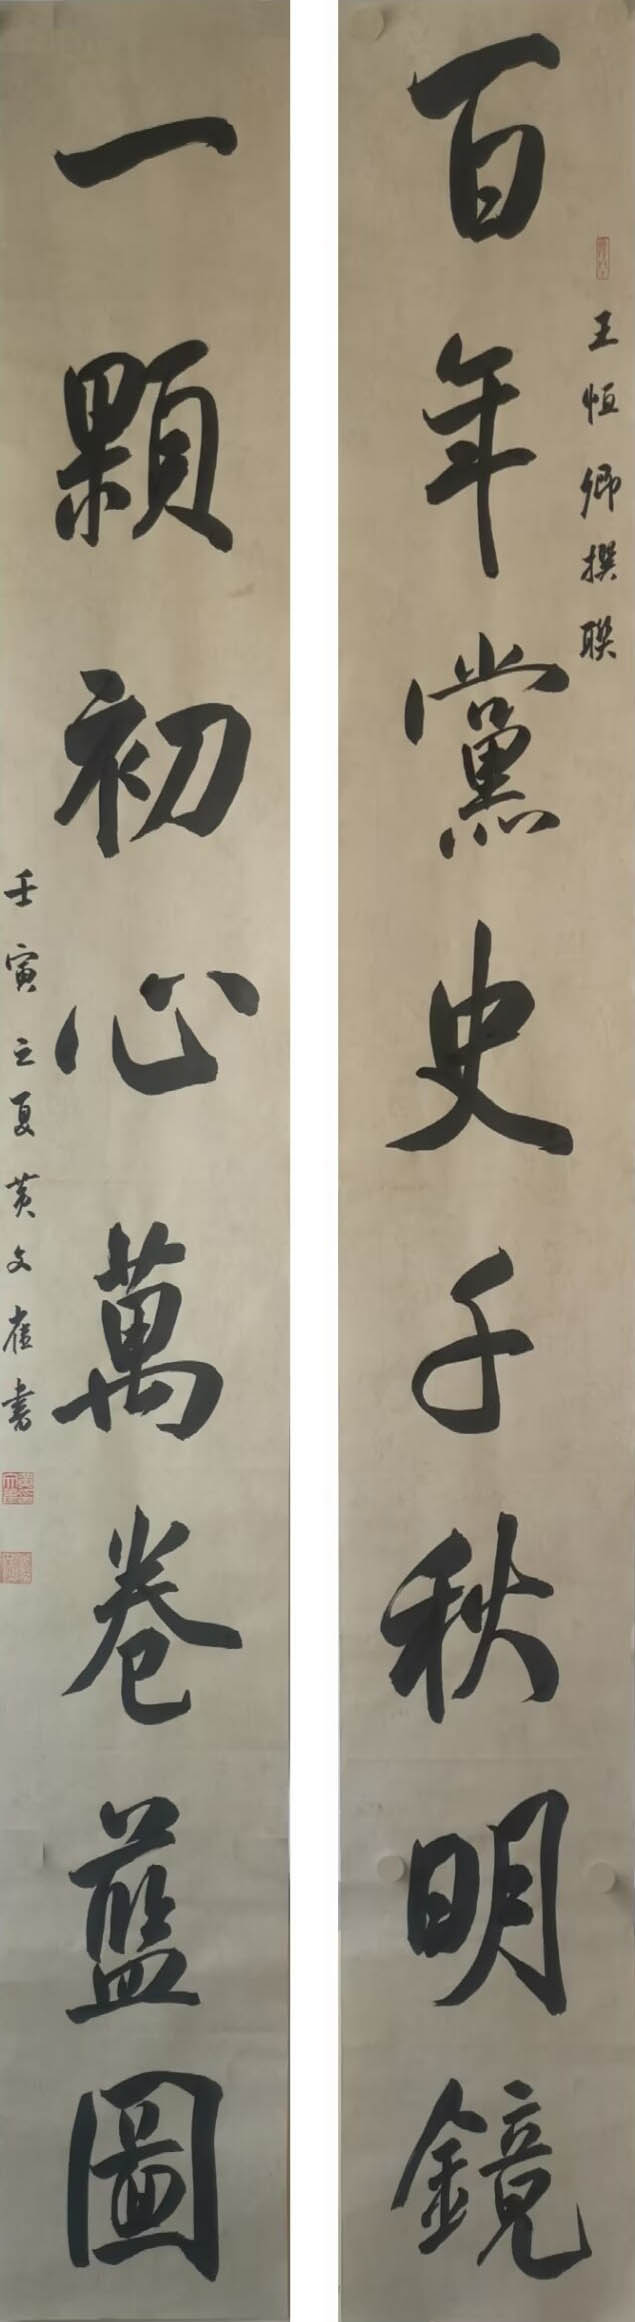 百年黨史千秋明鏡
王恒卿撰聯
一顆初心萬卷藍圖
壬寅之夏黄文崔書